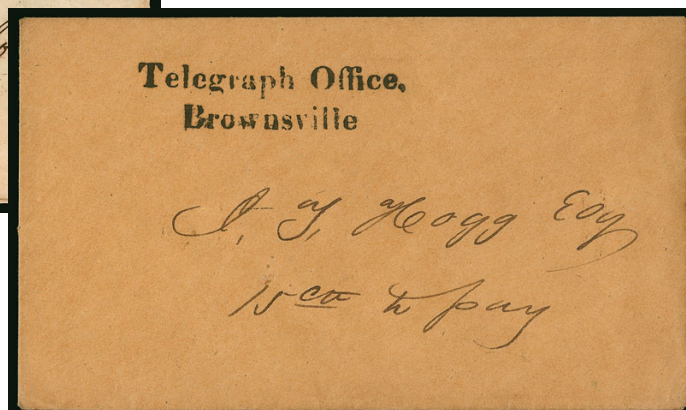 Telegraph Office,
Brownsville
J. Y. Hogg Esq
15 cts to pay